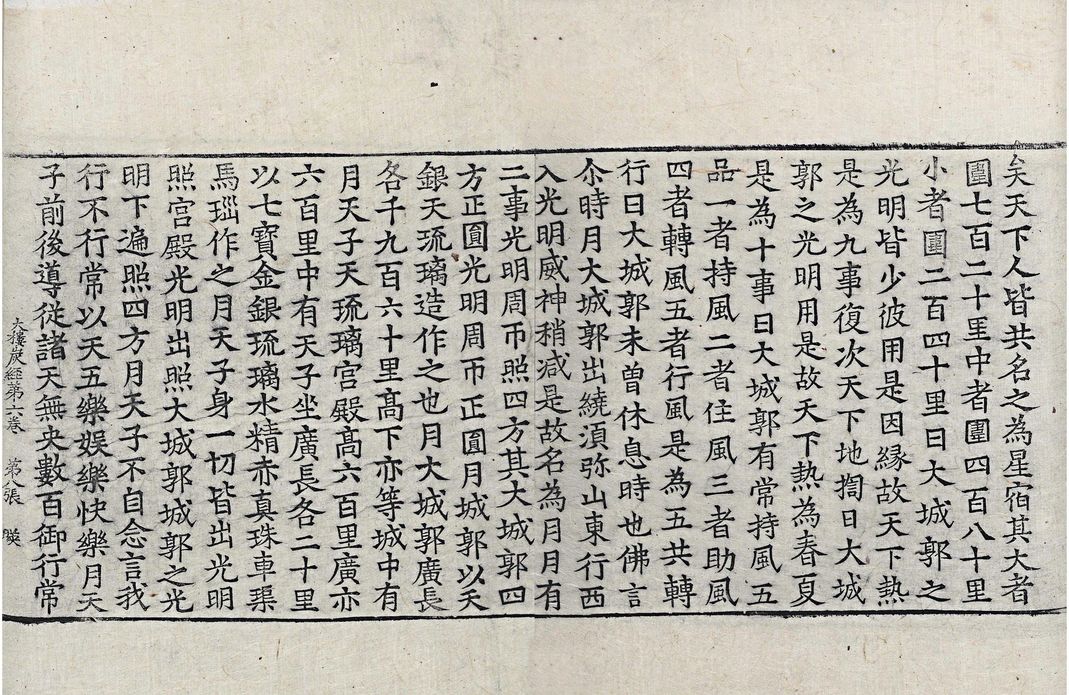 矣天下人皆共名之為星宿其大者
圍七百二十里中者圍四百八十里
小者圍二百四十里日大城郭之
光明皆少彼用是因緣故天下熱
是為九事復次天下地掏日大城
郭之光明用是故天下熱為春夏
是為十事日大城郭有常持風五
品一者持風二者住風三者助風
四者轉風五者行風是為五共轉
行日大城郭未曾休息時也佛言
尒時月大城郭出繞須弥山東行西
入光明威神稍減是故名為月月有
二事光明周帀照四方其大城郭四
方正圓光明周帀正圓月城郭以天
銀天琉璃造作之也月大城郭廣長
各千九百六十里高下亦等城中有
月天子天琉璃宮殿高六百里廣亦
六百里中有天子坐廣長各二十里
以七寶金銀琉璃水精赤真珠車璖
馬瑙作之月天子身一切皆出光明
照宮殿光明出照大城郭城郭之光
明下遍照四方月天子不自念言我
行不行常以天五樂娛樂快樂月天
子前後導從諸天無央數百御行常
大樓炭經第六卷 第八張 暎